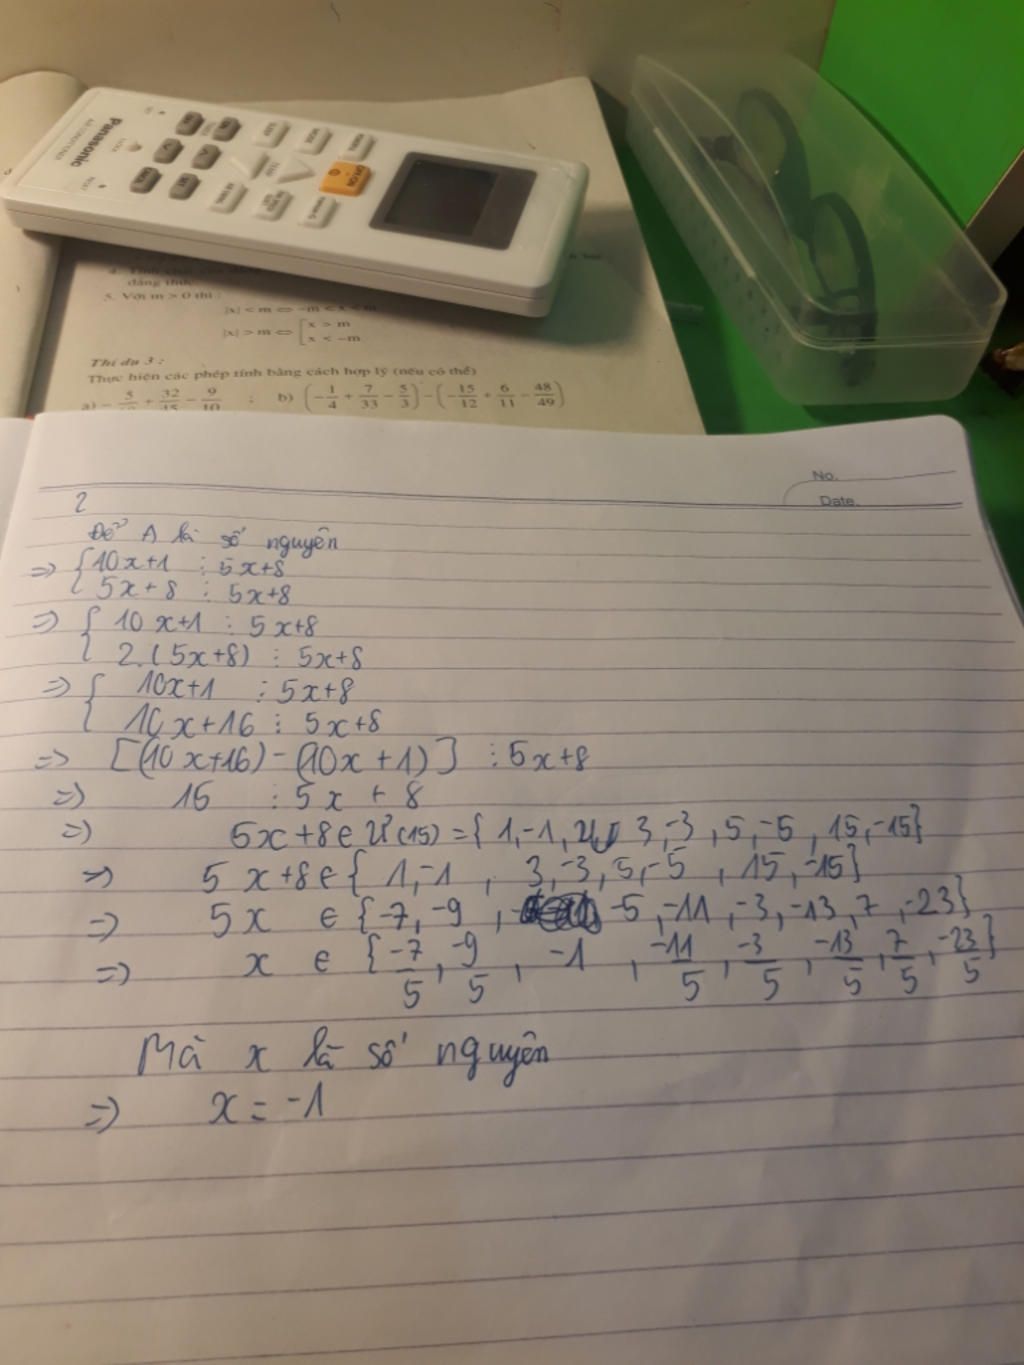 Panasonic
OFF/ON
đẳng thức.
5. Với m > 0 thì :
|x| < m ⇔ -m < x < m
|x| > m ⇔ [ x > m
x < -m
Thí dụ 3 :
Thực hiện các phép tính bằng cách hợp lý (nếu có thể)
b) (-1/4 + 7/33 - 5/3) - (-15/12 + 6/11 - 48/49)
No.
Date.
2
Để A là số nguyên
=> { 10x+1 ⋮ 5x+8
5x+8 ⋮ 5x+8
=> { 10x+1 ⋮ 5x+8
2.(5x+8) ⋮ 5x+8
=> { 10x+1 ⋮ 5x+8
10x+16 ⋮ 5x+8
=> [(10x+16)-(10x+1)] ⋮ 5x+8
=> 15 ⋮ 5x+8
=> 5x+8 ∈ Ư(15) = { 1,-1, 3,-3, 5,-5, 15,-15}
=> 5x+8 ∈ { 1,-1, 3,-3,5,-5, 15,-15}
=> 5x ∈ {-7, -9, -5, -11, -3, -13, 7, -23}
=> x ∈ {-7/5, -9/5, -1, -11/5, -3/5, -13/5, 7/5, -23/5}
Mà x là số nguyên
=> x = -1